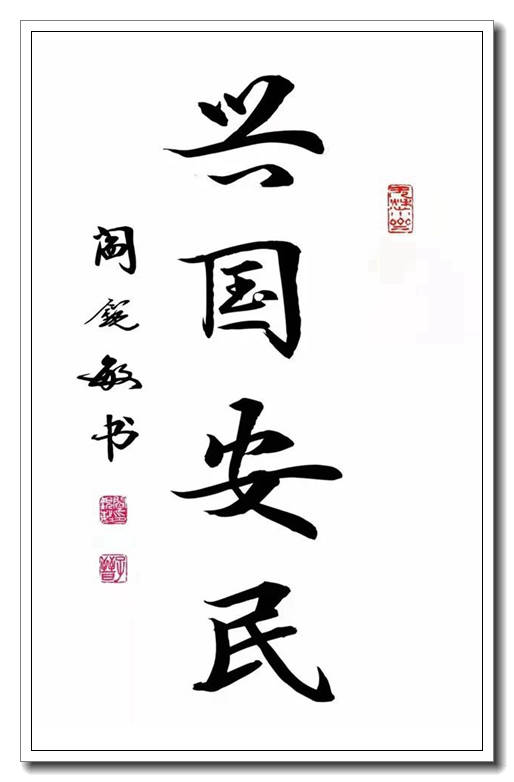 兴国安民
阎锐敏书